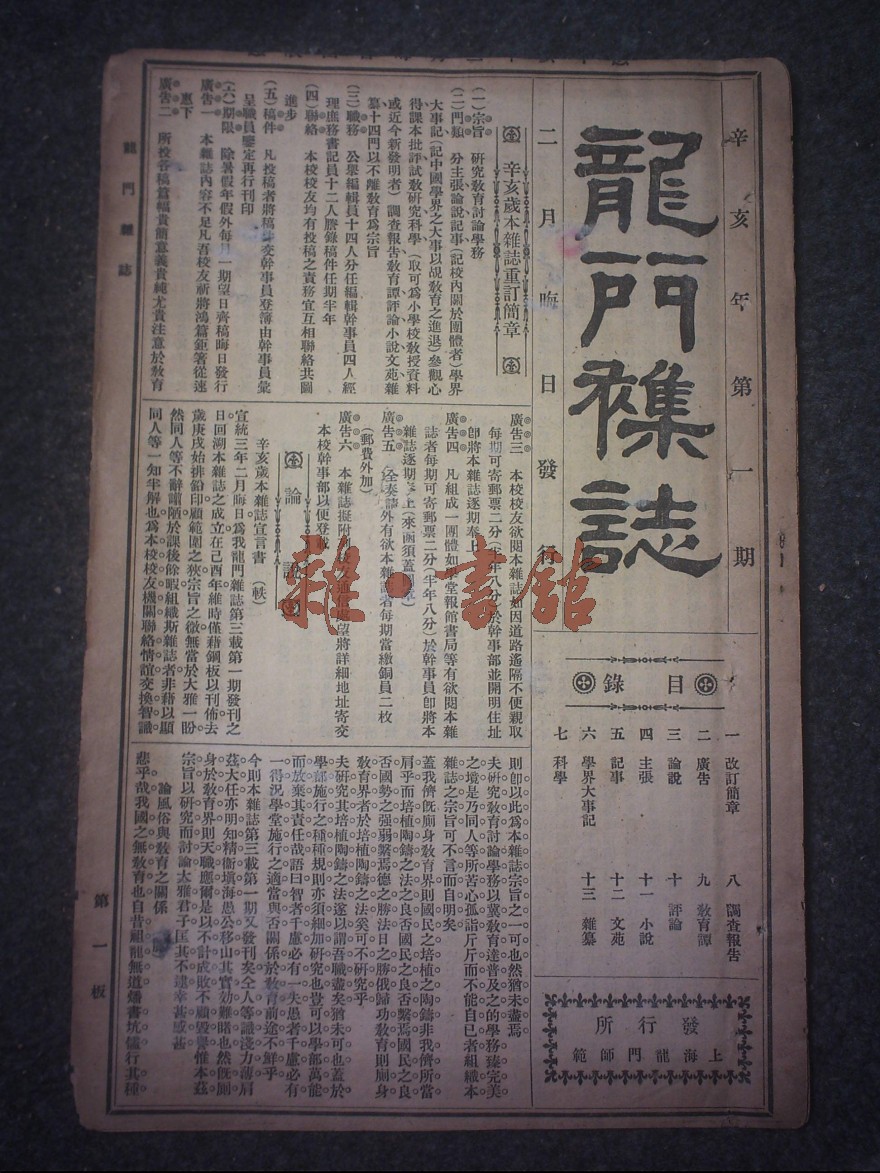 辛亥年第一期
龍門雜誌
二月晦日發行
目錄
一 改訂簡章
二 廣告
三 論說
四 主張
五 記事
六 學界大事記
七 科學
八 調查報告
九 教育譚
十 評論
十一 小說
十二 文苑
十三 雜纂
發行所
上海龍門師範
辛亥歲本雜誌重訂簡章
(一)宗旨 研究教育討論學務
(二)門類 分主張論說記事(記校內關於團體者)學界
大事記(記中國學界之大事以覘教育之進退)參觀心
得課本批評試教研究科學(取可爲小學校教授資料
或近今新發明者)調查報告教育譚評論小說文苑雜
纂十四門以不離教育爲宗旨
(三)職務 公舉編輯員十四人分任編輯幹事員四人經
理庶務書記員十二人謄錄稿件任期半年
(四)聯絡 本校校友均有投稿之責務宜互相聯絡共圖
進步
(五)稿件 凡投稿者將稿交幹事員登簿由幹事員彙
呈職員鑒定再行刊印
(六)期限 除暑假年假外每月一期望日齊稿晦日發行
廣告一 本雜誌內容不足凡吾校友祈將鴻篇鉅著從速
惠下
廣告二 所投各稿篇幅貴簡意義貴純尤貴注意於教育
廣告三 本校校友欲閱本雜誌如因道路遙隔不便親取
每期可寄郵票二分(半年八分)於幹事部並開明住址
卽將本雜誌逐期奉上
廣告四 凡組成一團體如學堂報館書局等有欲閱本雜
誌者每期可寄郵票二分(半年八分)於幹事員卽將本
雜誌逐期上(來函須蓋
廣告五 外有欲本雜誌者每期當繳銅員二枚
(郵費外加)
廣告六 本雜誌擬附友通信處望將詳細地址寄交
本校幹事部以便登載
論說
辛亥歲本雜誌宣言書 (軼)
宣統三年二月晦日爲我龍門雜誌第三載第一期發刊之
日回溯本雜誌之成立在己酉年維時僅藉鋼板以刊佈去
歲庚戌始排鉛印顧範圍之狹宗旨之微無當於大雅一盼
然同人等不辭譾陋於課後餘暇組織斯雜誌者非藉以顯
同人等一知半解也爲本校校友機關聯絡情誼交換智識
則卽以此爲本雜誌宗旨之一可也然猶未盡焉
夫研究教育討論學務以冀教育達普及之的學務臻完美
之境是乃同人等所苦心孤詣斤斤而不能自已者組織本
雜誌之宗旨可不言而自明矣
蓋我儕既廁身教育界則國民之培植之陶鑄非我儕所當
肩乎而培植陶鑄之法之良否國民之良否繫焉國民之良
否國勢之强弱繫焉德之勝法日之勝俄歸功教育則廁身
教育界者於培植陶鑄之法奚可不研究乎
夫研究其培植陶鑄之法遂以謂吾職盡矣猶未可也蓋於
學部施行之種種規則亦須細加研究也豈可以學部萬能
而放棄其責任哉語曰智者千慮必有一失愚者千慮必有
一得況學堂施行之適當與否關係於教育前途不鮮乎
今則本雜誌第三載第一期又發刊矣仝人等識淺力薄肩
茲大任亦明知精衞塡海愚公移山其實効難睹也然旣廁
身於教育界則天職應爾是以不計成敗不顧毀譽惟本茲
宗旨以研究而討論大雅君子匡其不逮幸甚感甚
論風俗與教育之關係
悲乎哉我國之無教育也自昔祖龍無道燔書坑儒行其種
龍門雜誌
第一板
雜·書館